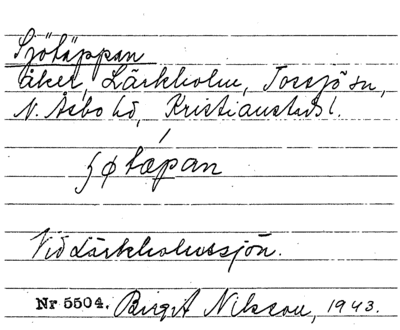 Sjötäppan
åker, Lärkholm, Tossjö sn,
N. Åsbo hd, Kristianstads l.
ʃøtæpan
Vid Lärkholmssjön.
Nr 5504. Birgit Nilsson, 1943.